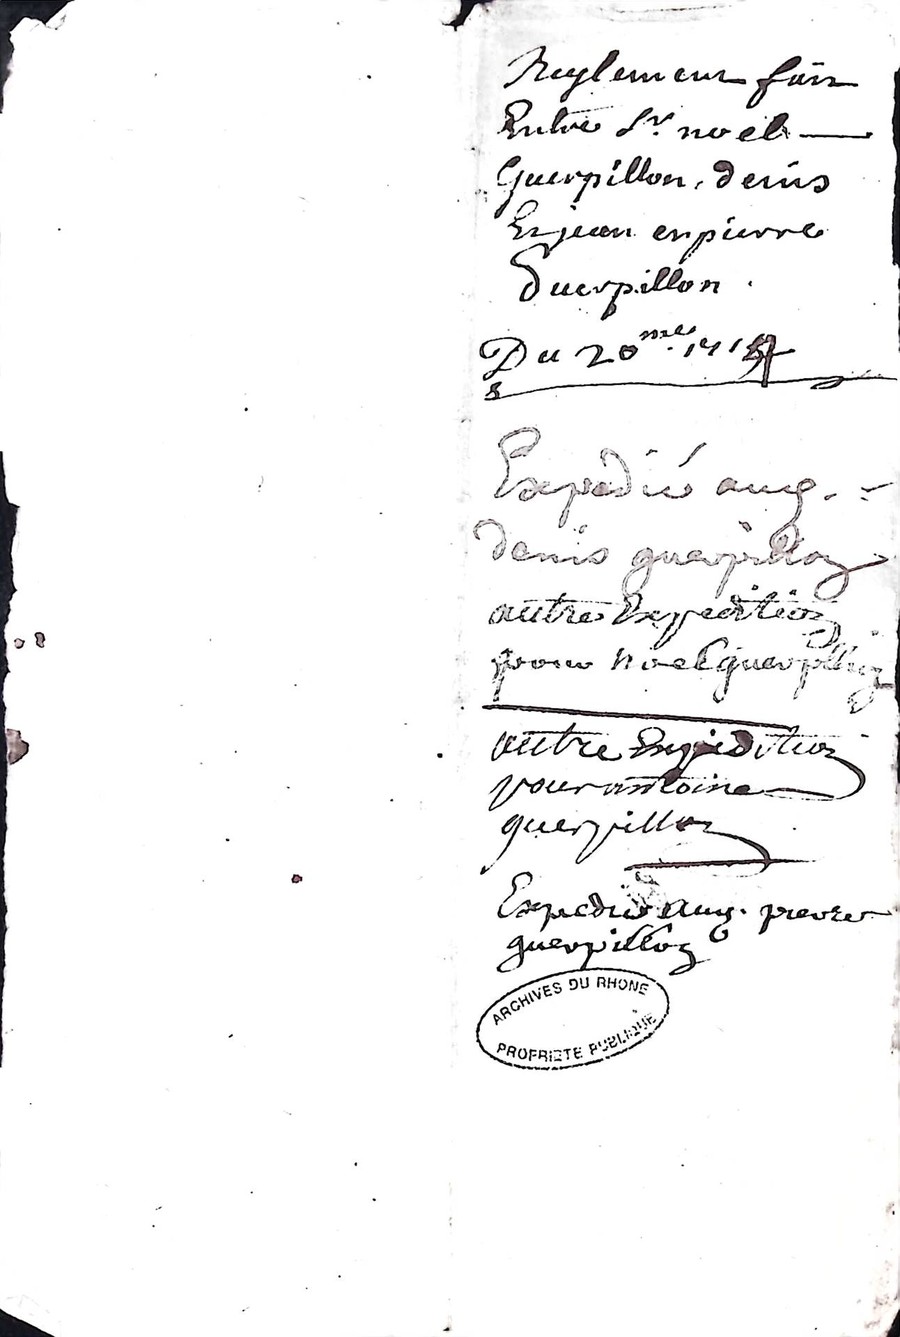 Reglement fait
Entre Sr. noel
Guerpillon, denis
Et jean et pierre
Guerpillon.
Du 20 mes
Expedié aug.
denis guerpillon
autre Expedition
pour noel guerpillon
autre Expedition
pour antoine
guerpillon
Expedié aug. pierre
guerpillon
ARCHIVES DU RHONE
PROPRIETE PUBLIQUE